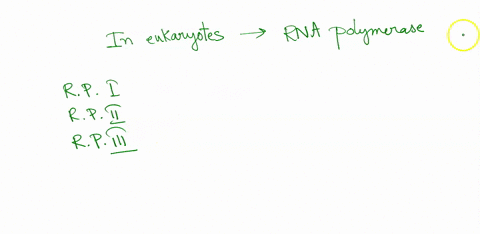 In eukaryotes → RNA polymerase
R.P. I
R.P. II
R.P. III